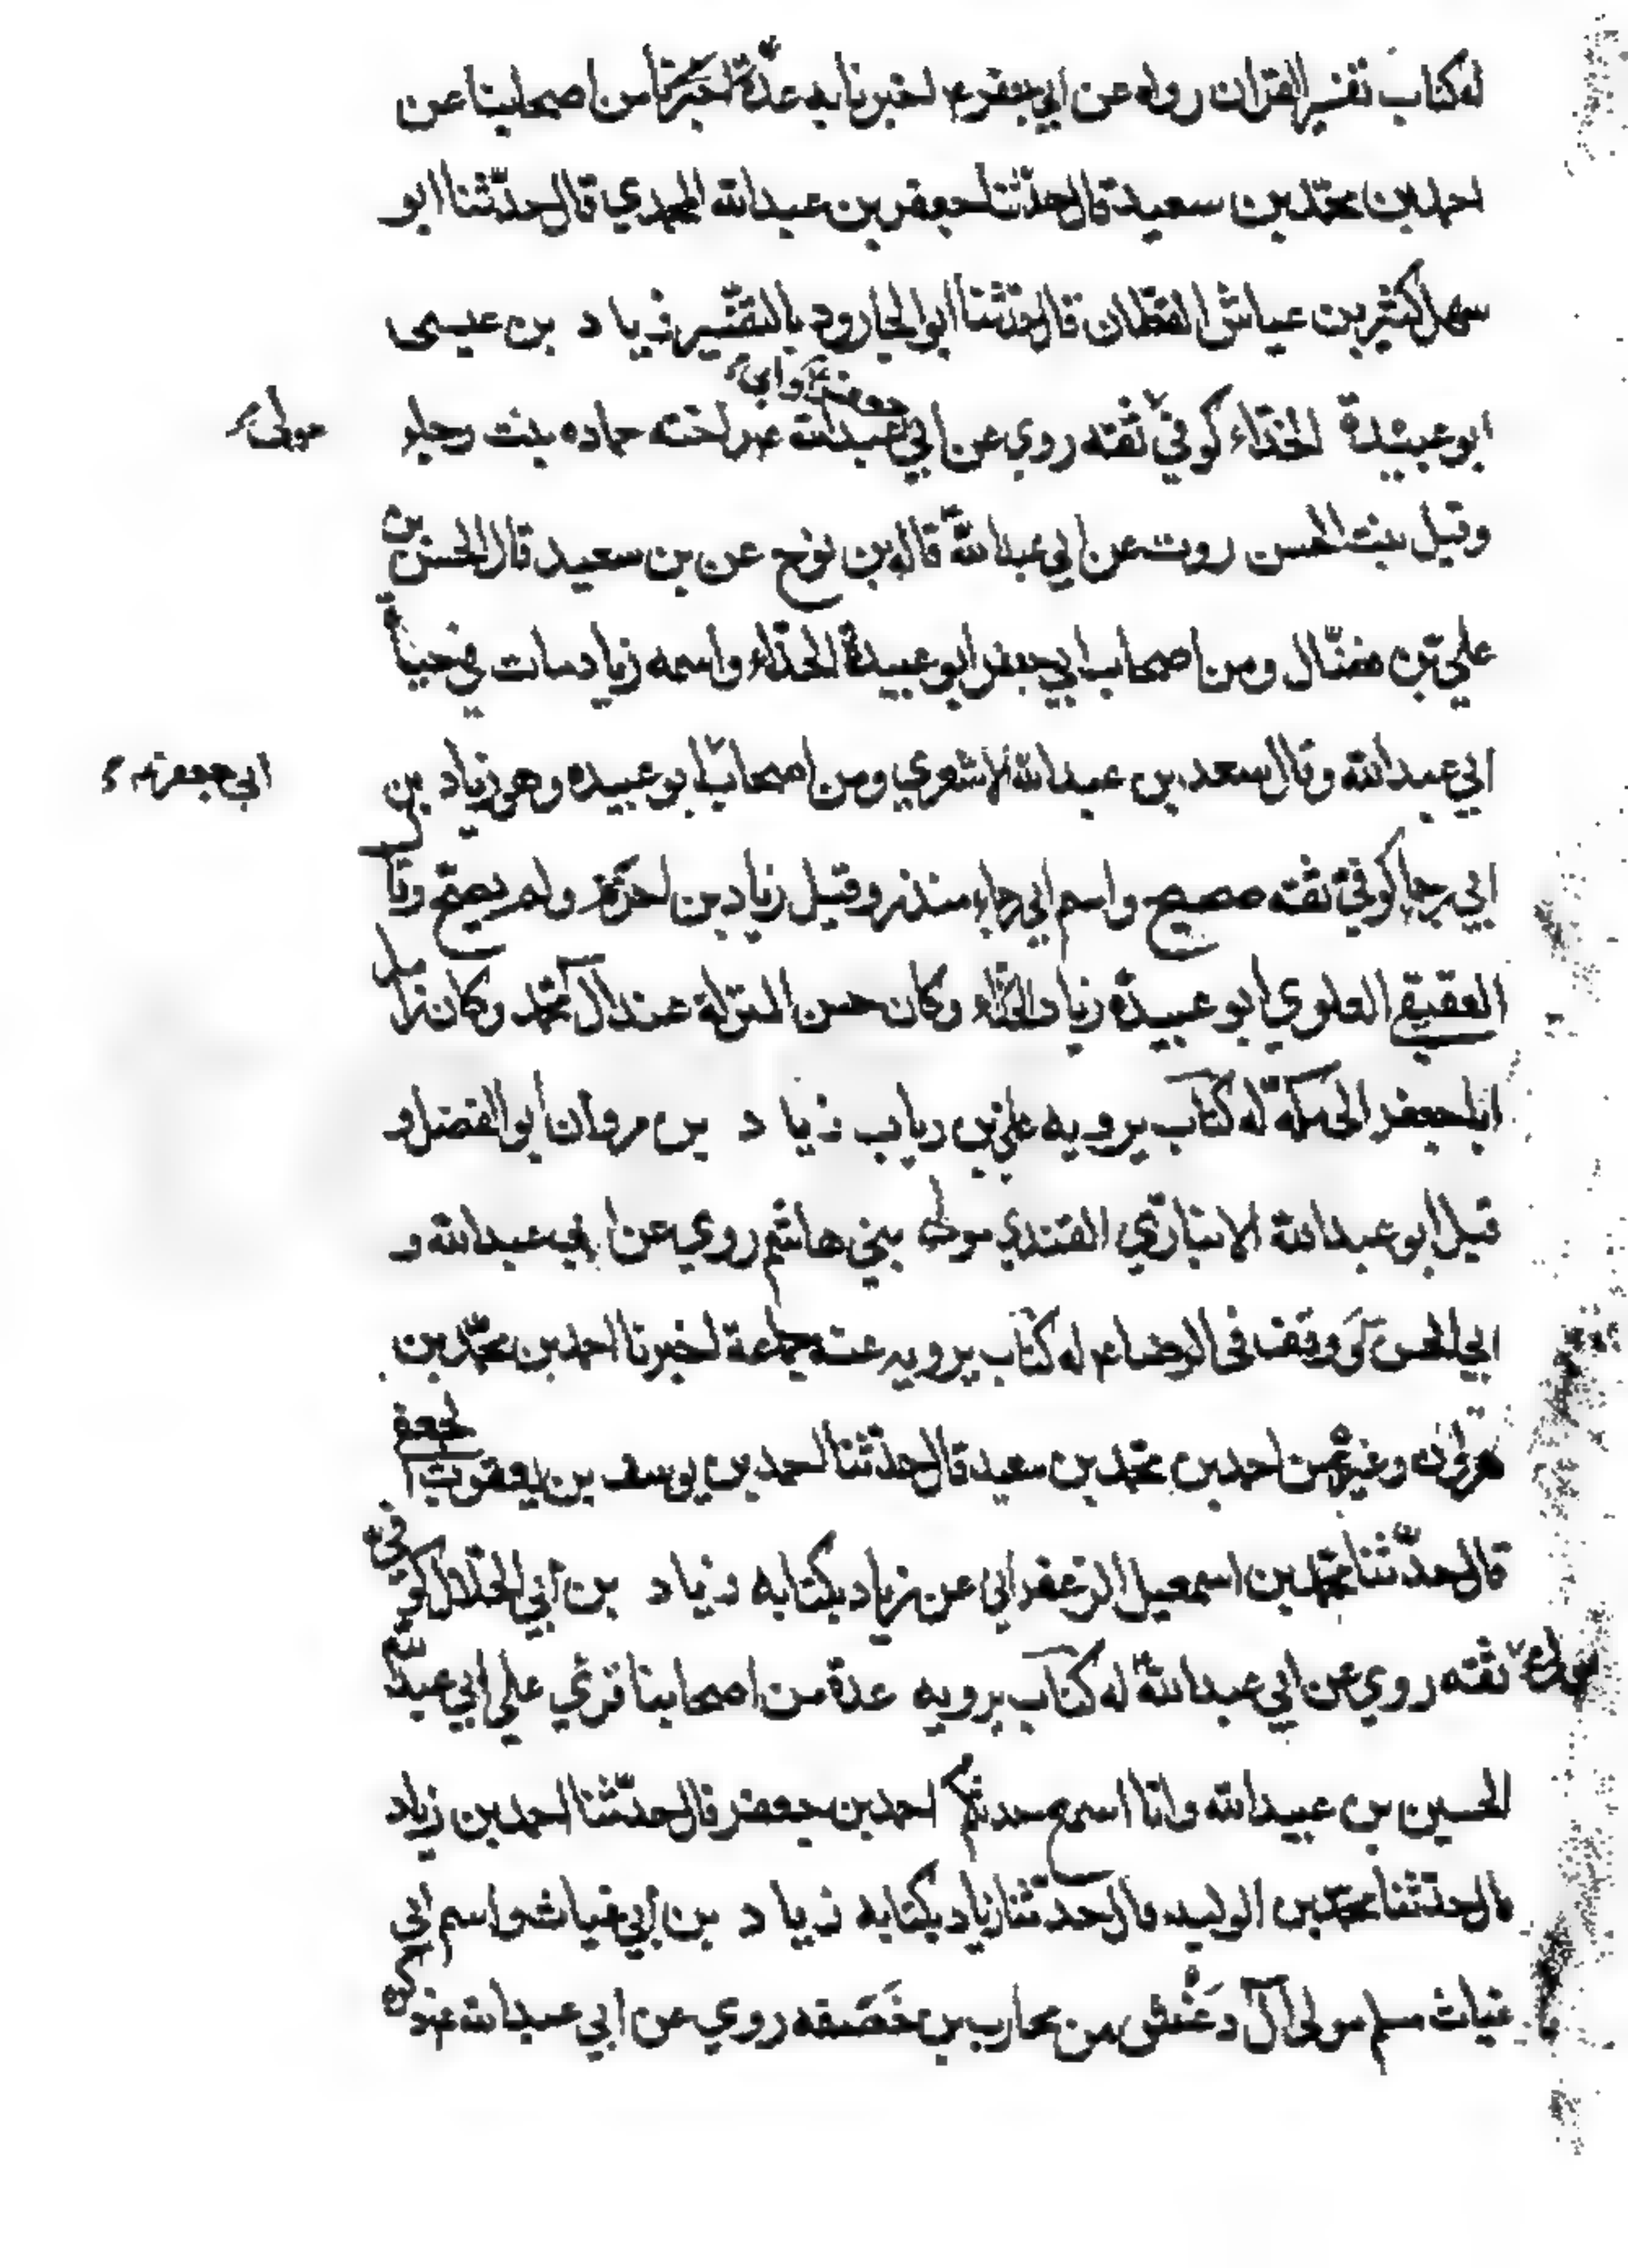 له كتاب تفسير القران رواه عن ابي جعفر ع اخبرنا به عدة اخبرنا من اصحابنا عن
احمد بن محمد بن سعيد قال حدثنا جعفر بن عبدالله المحمدي قال حدثنا ابو
سهل كثير بن عياش القطان قال حدثنا ابو الجارود بالتفسير زياد بن عيسى
ابو عبيدة الحذاء كوفي ثقه روي عن ابي جعفر وابي عبدالله اخته حماده بنت رجاو
مولى
وقيل بنت الحسن روت عن ابي عبدالله قاله بن نوح عن بن سعيد قال الحسن بن
علي بن فضّال ومن اصحاب ابي جعفر ابو عبيدة الحذاء واسمه زياد مات في حياة
ابي عبدالله وقال سعد بن عبدالله الاشعري ومن اصحاب ابو عبيده وهو زياد بن
ابي جعفر
ابي رجا كوفي ثقه صحيح واسم ابي رجاء منذر وقيل زياد بن احزم ولم يصح وقال
العقيقي العلوي ابو عبيدة زياد الحذاء وكان حسن المنزلة عند آل محمد وكان زامل
ابا جعفر الى مكة له كتاب يرويه علي بن رياب زياد بن مروان ابو الفضل و
قيل ابو عبدالله الانباري القندي مولى بني هاشم روي عن ابي عبدالله و
ابي الحسن ووقف في الرضا ع له كتاب يرويه عنه جماعة اخبرنا احمد بن محمد بن
هرون وغيره عن احمد بن محمد بن سعيد قال حدثنا احمد بن يوسف بن يعقوب الجعفي
قال حدّثنا محمد بن اسمعيل الزعفراني عن زياد بكتابه زياد بن ابي الحلال كوفي
ثقه روي عن ابي عبدالله له كتاب يرويه عدة من اصحابنا قرئ علي ابي عبدالله
الحسين بن عبيدالله وانا اسمع حدثكم احمد بن جعفر قال حدّثنا احمد بن زياد
قال حدثنا محمد بن الوليد قال حدثنا زياد بكتابه زياد بن ابي غياث واسم ابي
غياث مسلم مولى آل دَغْش من محارب بن خَصَفه روي عن ابي عبدالله